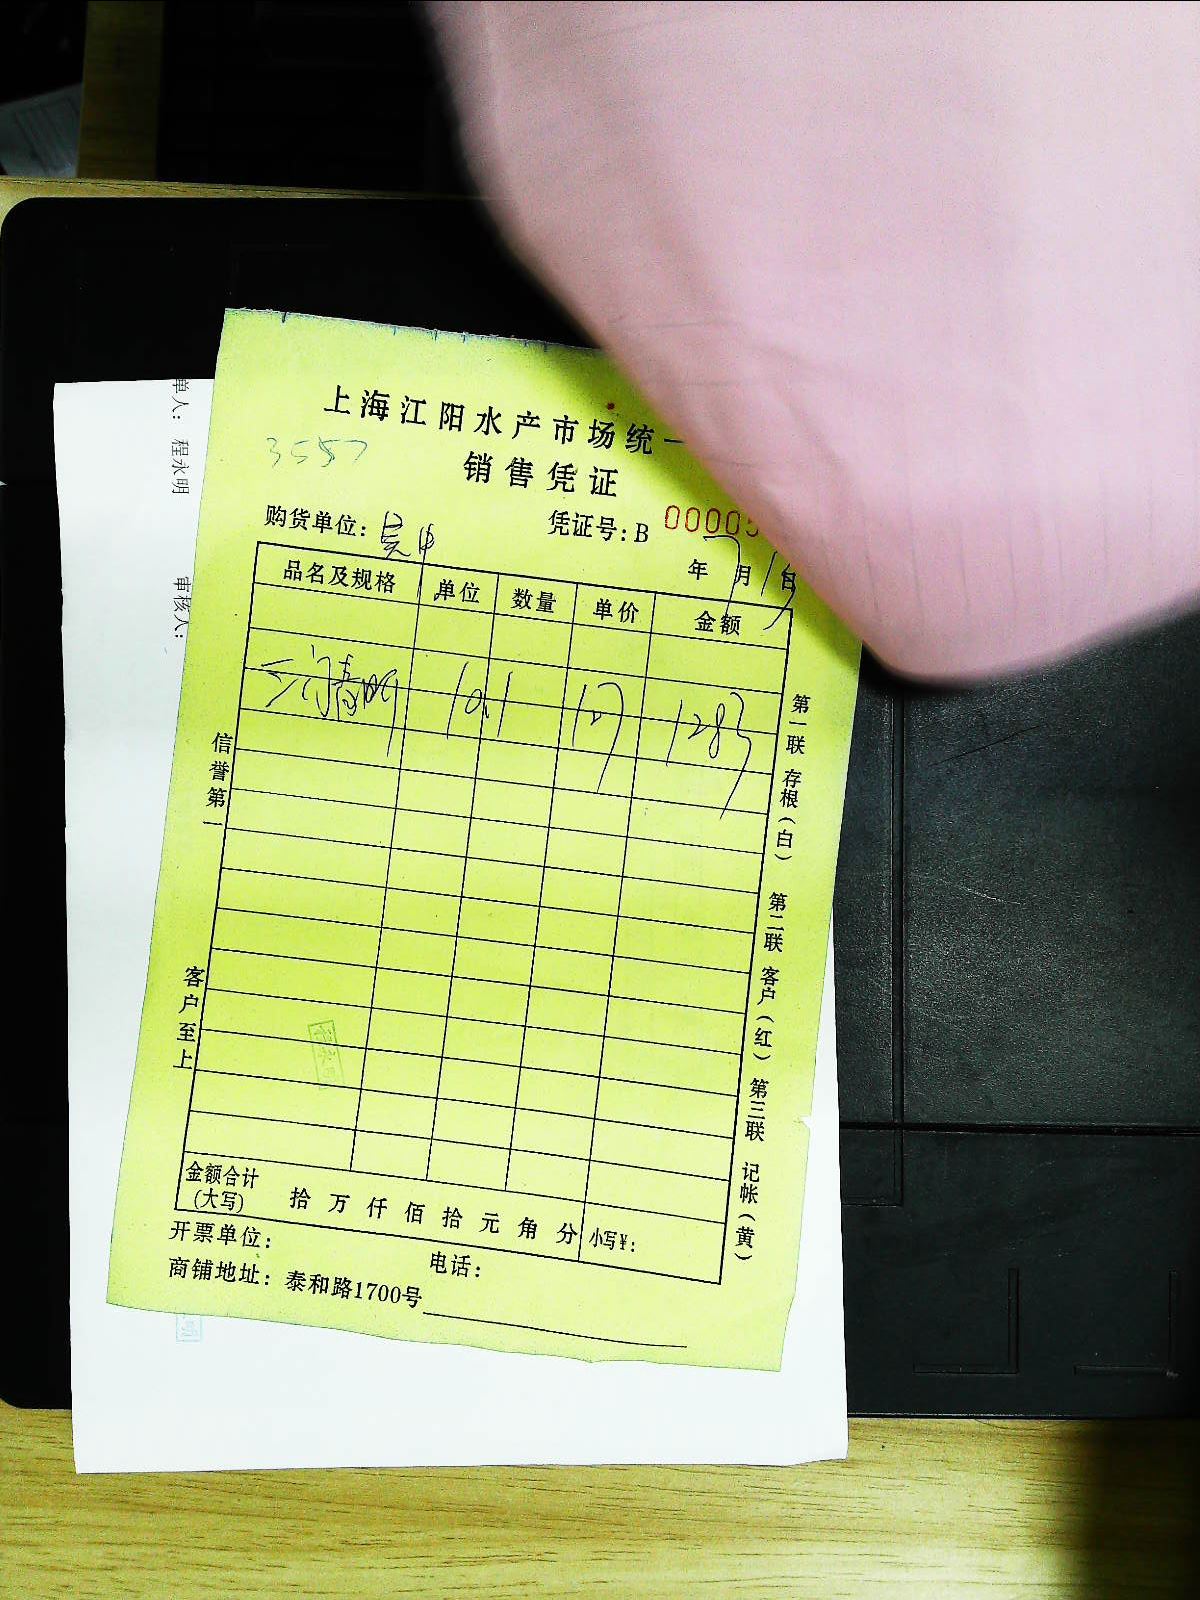 上海江阳水产市场统一
3557
销售凭证
购货单位: 凭证号: B 00005
年 7月 1日
品名及规格 单位 数量 单价 金额
三门青 10.1 127 1283
信誉第一
客户至上
第一联 存根(白) 第二联 客户(红) 第三联 记帐(黄)
金额合计
(大写) 拾 万 仟 佰 拾 元 角 分 小写¥:
开票单位: 电话:
商铺地址: 泰和路1700号
单人: 程永明 审核人: